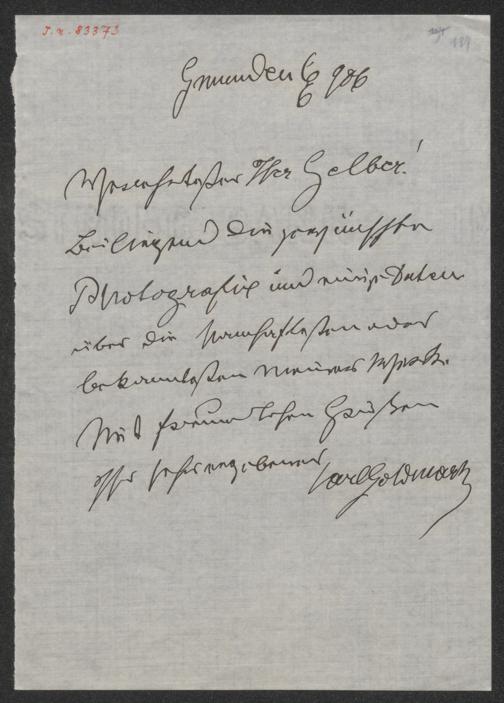 J.N. 83373
189
Gmunden 6/6 906
Verehrtester Herr Gelber!
Beiliegend die gewünschte
Photografie und einige Daten
über die namhaftesten oder
bekanntesten meiner Werke.
Mit freundlichen Grüßen
Ihr sehr ergebener
Karl Goldmark